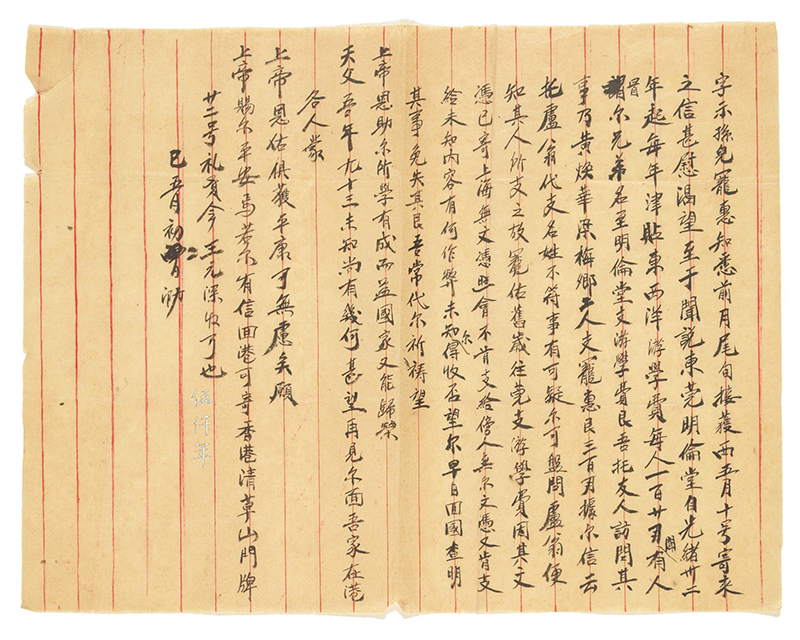 字示孫兒寵惠知悉前月尾旬接獲西五月十號寄來
之信甚慰渴望至于聞說東莞明倫堂自光緒卅二
年起每年津貼東西洋游學費每人一百廿員聞有人
冒爾兄弟名至明倫堂支游學費艮吾托友人訪問其
事乃黃煥華梁梅鄉二人支寵惠艮三百員據尔信去
托盧翁代支名姓不符事有可疑尔可盤問盧翁便
知其人所支之故寵佑舊歲往莞支游學費因其文
憑已寄上海無文憑照會不肯支給傍人無尔文憑又肯支
給未知內容有何作弊未知尔得收否望尔早日回國查明
其事免失其艮吾常代尔祈禱望
上帝恩助尔所學有成而益國家又能歸榮
天父吾年九十三未知尚有幾何甚望再見尔面吾家在港
各人蒙
上帝恩佑俱獲平康可無慮矣願
上帝賜尔平安焉若下有信回港可寄香港清草山門牌
廿二号礼賢会王元深收可也
己 五月初二日泐